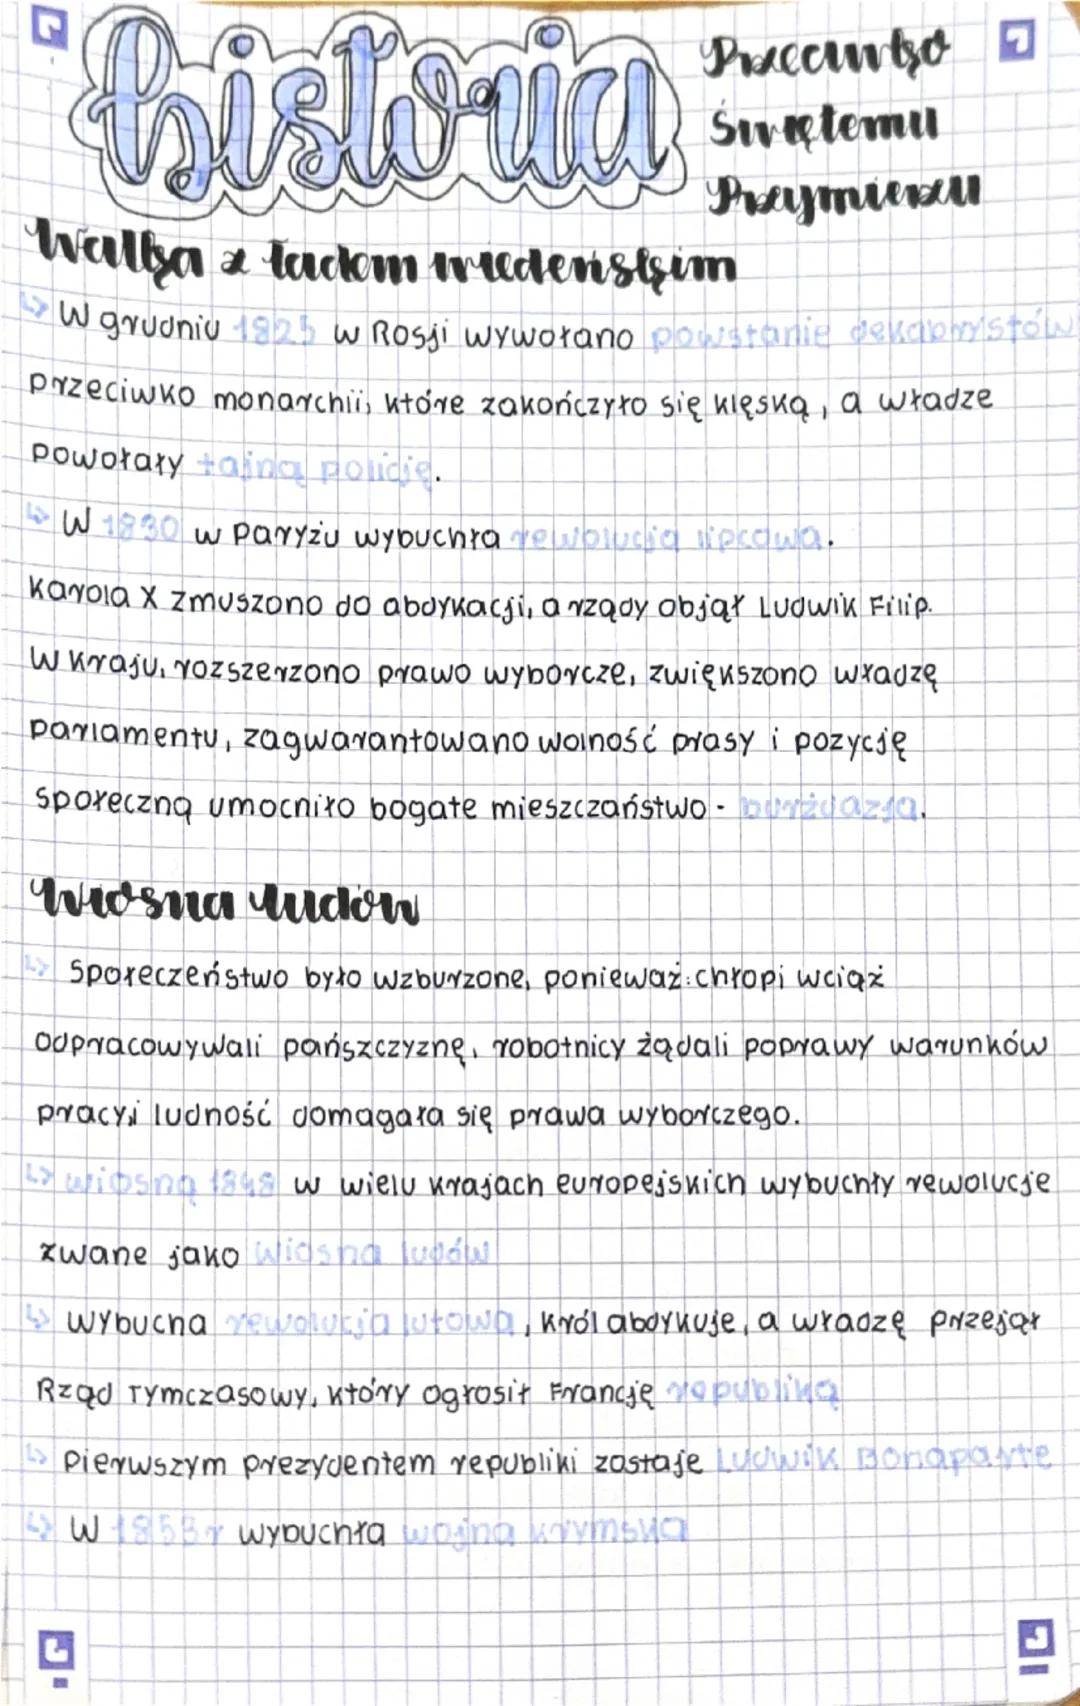 historia
Przeciwko
Świętemu
Przymierzu
Walka z ładem wiedeńskim
↳ W grudniu 1825 w Rosji wywołano powstanie dekabrystów
przeciwko monarchii, które zakończyło się klęską, a władze
powołały tajną policję.
↳ W 1830 w Paryżu wybuchła rewolucja lipcowa.
Karola X zmuszono do abdykacji, a rządy objął Ludwik Filip.
W kraju, rozszerzono prawo wyborcze, zwiększono władzę
parlamentu, zagwarantowano wolność prasy i pozycję
społeczną umocniło bogate mieszczaństwo - burżuazja.
Wiosna ludów
↳ Społeczeństwo było wzburzone, ponieważ: chłopi wciąż
odpracowywali pańszczyznę, robotnicy żądali poprawy warunków
pracy, i ludność domagała się prawa wyborczego.
↳ wiosną 1848 w wielu krajach europejskich wybuchły rewolucje
zwane jako wiosna ludów
↳ wybucha rewolucja lutowa, król abdykuje, a władzę przejął
Rząd Tymczasowy, który ogłosił Francję republiką
↳ pierwszym prezydentem republiki zostaje Ludwik Bonaparte
↳ W 1853r wybuchła wojna krymska